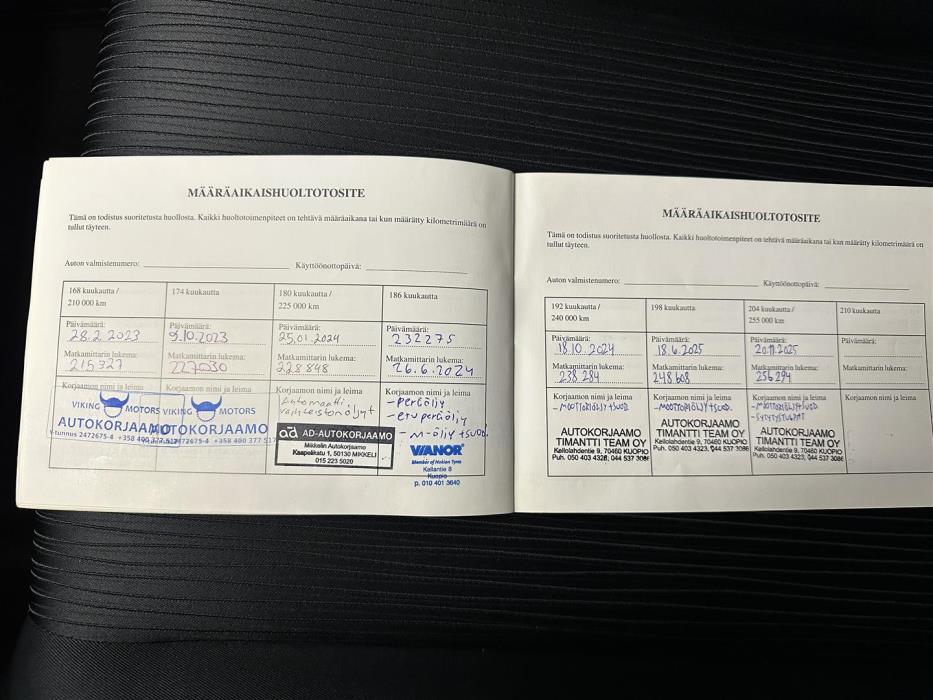 MÄÄRÄAIKAISHUOLTOTOSITE
Tämä on todistus suoritetusta huollosta. Kaikki huoltotoimenpiteet on tehtävä määräaikana tai kun määrätty kilometrimäärä on
tullut täyteen.
Auton valmistenumero:
Käyttöönottopäivä:
168 kuukautta /
210 000 km
Päivämäärä:
28.2.2023
Matkamittarin lukema:
215327
Korjaamon nimi ja leima
VIKING MOTORS
AUTOKORJAAMO
Y-tunnus 2472675-4 +358 400 377 517
174 kuukautta
Päivämäärä:
9.10.2023
Matkamittarin lukema:
227030
Korjaamon nimi ja leima
VIKING MOTORS
AUTOKORJAAMO
2472675-4 +358 400 377 517
180 kuukautta /
225 000 km
Päivämäärä:
25.01.2024
Matkamittarin lukema:
228 848
Korjaamon nimi ja leima
Automaatti,
vaihteistonöljyt
ad AD-AUTOKORJAAMO
Mikkelin Autokorjaamo
Kaapelikatu 1, 50130 MIKKELI
015 223 5020
186 kuukautta
Päivämäärä:
232275
Matkamittarin lukema:
26.6.2024
Korjaamon nimi ja leima
-peräöljy
-etuperäöljy
-m-öljy+suod.
VIANOR
Member of Nokian Tyres
Kallantie 8
Kuopio
p. 010 401 3640
MÄÄRÄAIKAISHUOLTOTOSITE
Tämä on todistus suoritetusta huollosta. Kaikki huoltotoimenpiteet on tehtävä määräaikana tai kun määrätty kilometrimäärä on
tullut täyteen.
Auton valmistenumero:
Käyttöönottopäivä:
192 kuukautta /
240 000 km
Päivämäärä:
18.10.2024
Matkamittarin lukema:
238 284
Korjaamon nimi ja leima
-MOOTTORIÖLJY+SUOD.
AUTOKORJAAMO
TIMANTTI TEAM OY
Kellolahdentie 9, 70460 KUOPIO
Puh. 050 403 4323, 044 537 3086
198 kuukautta
Päivämäärä:
18.6.2025
Matkamittarin lukema:
248 608
Korjaamon nimi ja leima
-MOOTTORIÖLJY+SUOD.
AUTOKORJAAMO
TIMANTTI TEAM OY
Kellolahdentie 9, 70460 KUOPIO
Puh. 050 403 4323, 044 537 3086
204 kuukautta /
255 000 km
Päivämäärä:
20.11.2025
Matkamittarin lukema:
256 294
Korjaamon nimi ja leima
-MOOTTORIÖLJY+SUOD.
-SYTYTYSTULPAT
AUTOKORJAAMO
TIMANTTI TEAM OY
Kellolahdentie 9, 70460 KUOPIO
Puh. 050 403 4323, 044 537 3086
210 kuukautta
Päivämäärä:
Matkamittarin lukema:
Korjaamon nimi ja leima